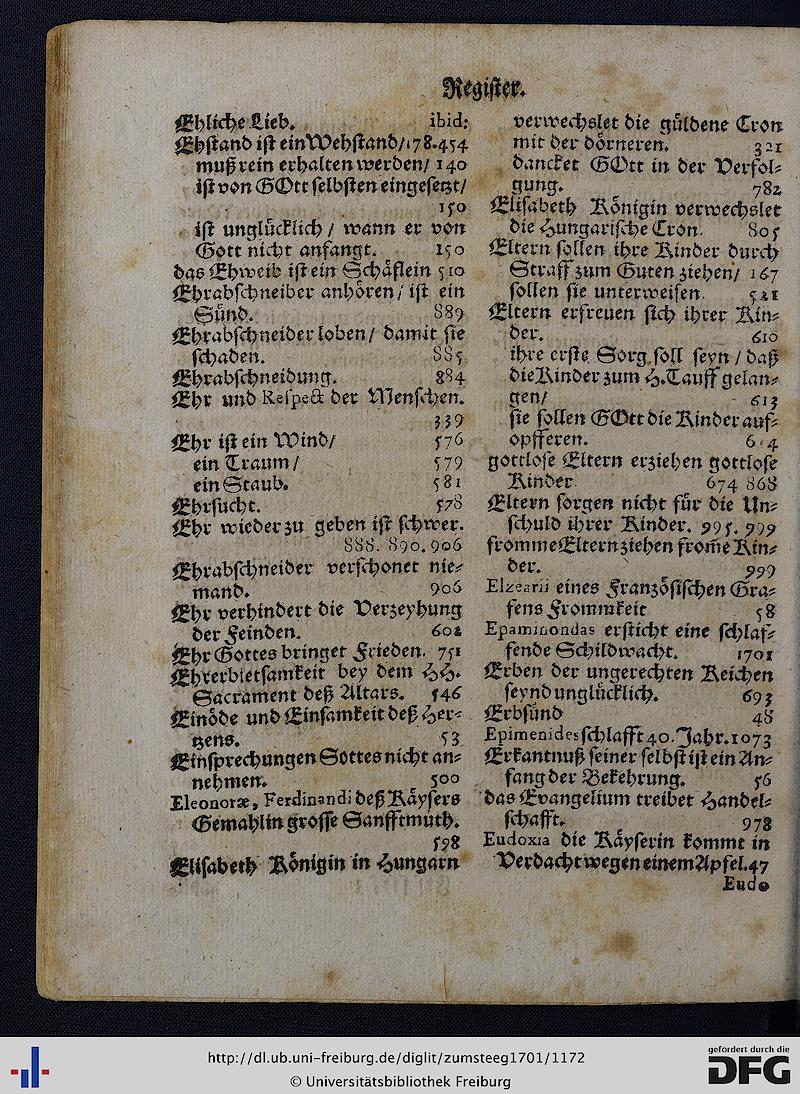 Register.
Ehliche Lieb. ibid:
Ehstand ist ein Wehstand/178.454
muß rein erhalten werden/ 140
ist von GOtt selbsten eingesetzt/
150
ist unglücklich / wann er von
Gott nicht anfangt. 150
das Ehweib ist ein Schäflein 510
Ehrabschneiber anhören / ist ein
Sünd. 889
Ehrabschneider loben / damit sie
schaden. 885
Ehrabschneidung. 884
Ehr und Respect der Menschen.
339
Ehr ist ein Wind/ 576
ein Traum / 579
ein Staub. 581
Ehrsucht. 578
Ehr wieder zu geben ist schwer.
888. 890. 906
Ehrabschneider verschonet nie⸗
mand. 906
Ehr verhindert die Verzeyhung
der Feinden. 602
Ehr Gottes bringet Frieden. 751
Ehrerbietsamkeit bey dem HH.
Sacrament deß Altars. 546
Einöde und Einsamkeit deß Her⸗
tzens. 53
Einsprechungen Gottes nicht an⸗
nehmen. 500
Eleonoræ, Ferdinandi deß Käysers
Gemahlin grosse Sanfftmuth.
598
Elisabeth Königin in Hungarn
verwechslet die güldene Cron
mit der dörneren. 321
dancket GOtt in der Verfol⸗
gung. 782
Elisabeth Königin verwechslet
die Hungarische Cron. 805
Eltern sollen ihre Kinder durch
Straff zum Guten ziehen/ 167
sollen sie unterweisen. 521
Eltern erfreuen sich ihrer Kin⸗
der. 610
ihre erste Sorg soll seyn / daß
die Kinder zum H. Tauff gelan⸗
gen/ 613
sie sollen GOtt die Kinder auf⸗
opfferen.
gottlose Eltern erziehen gottlose
Kinder 674 868
Eltern sorgen nicht für die Un⸗
schuld ihrer Kinder. 995. 999
fromme Eltern ziehen from̄e Kin⸗
der. 999
Elzearii eines Französischen Gra⸗
fens Frommkeit 58
Epaminondas ersticht eine schlaf⸗
fende Schildwacht. 1701
Erben der ungerechten Reichen
seynd unglücklich. 693
Erbsünd 48
Epimenides schlafft 40. Jahr. 1073
Erkantnuß seiner selbst ist ein An⸗
fang der Bekehrung. 56
das Evangelium treibet Handel⸗
schafft. 978
Eudoxia die Käyserin kommt in
Verdacht wegen einem Apfel. 47
Eudo
http://dl.ub.uni-freiburg.de/diglit/zumsteeg1701/1172
© Universitätsbibliothek Freiburg
gefördert durch die
DFG